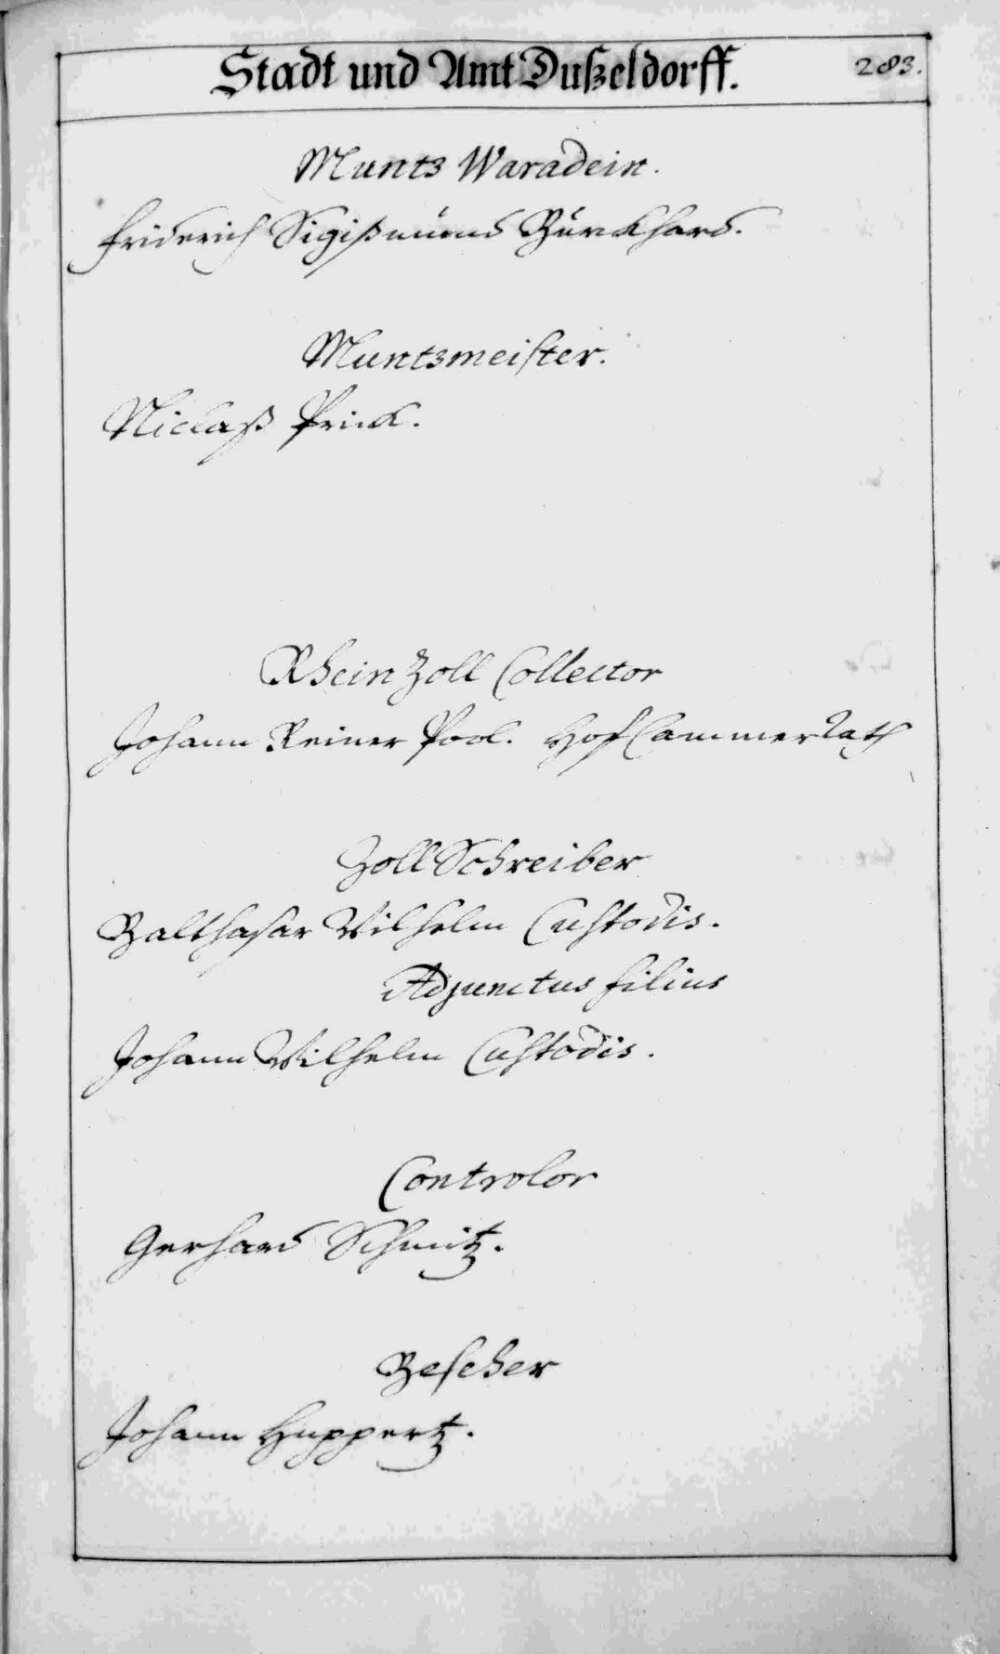 Stadt und Amt Dußeldorff. 283.
Munts Waradein.
Friderich Sigißmund Burkhard.
Muntsmeister.
Niclaß Prick.
Rhein Zoll Collector
Johann Reiner Pool. Hof Cammer Rath
Zoll Schreiber
Balthasar Wilhelm Custodis.
Adjunctus filius
Johann Wilhelm Custodis.
Controlor
Gerhard Schmitz.
Beseher
Johann Huppertz.